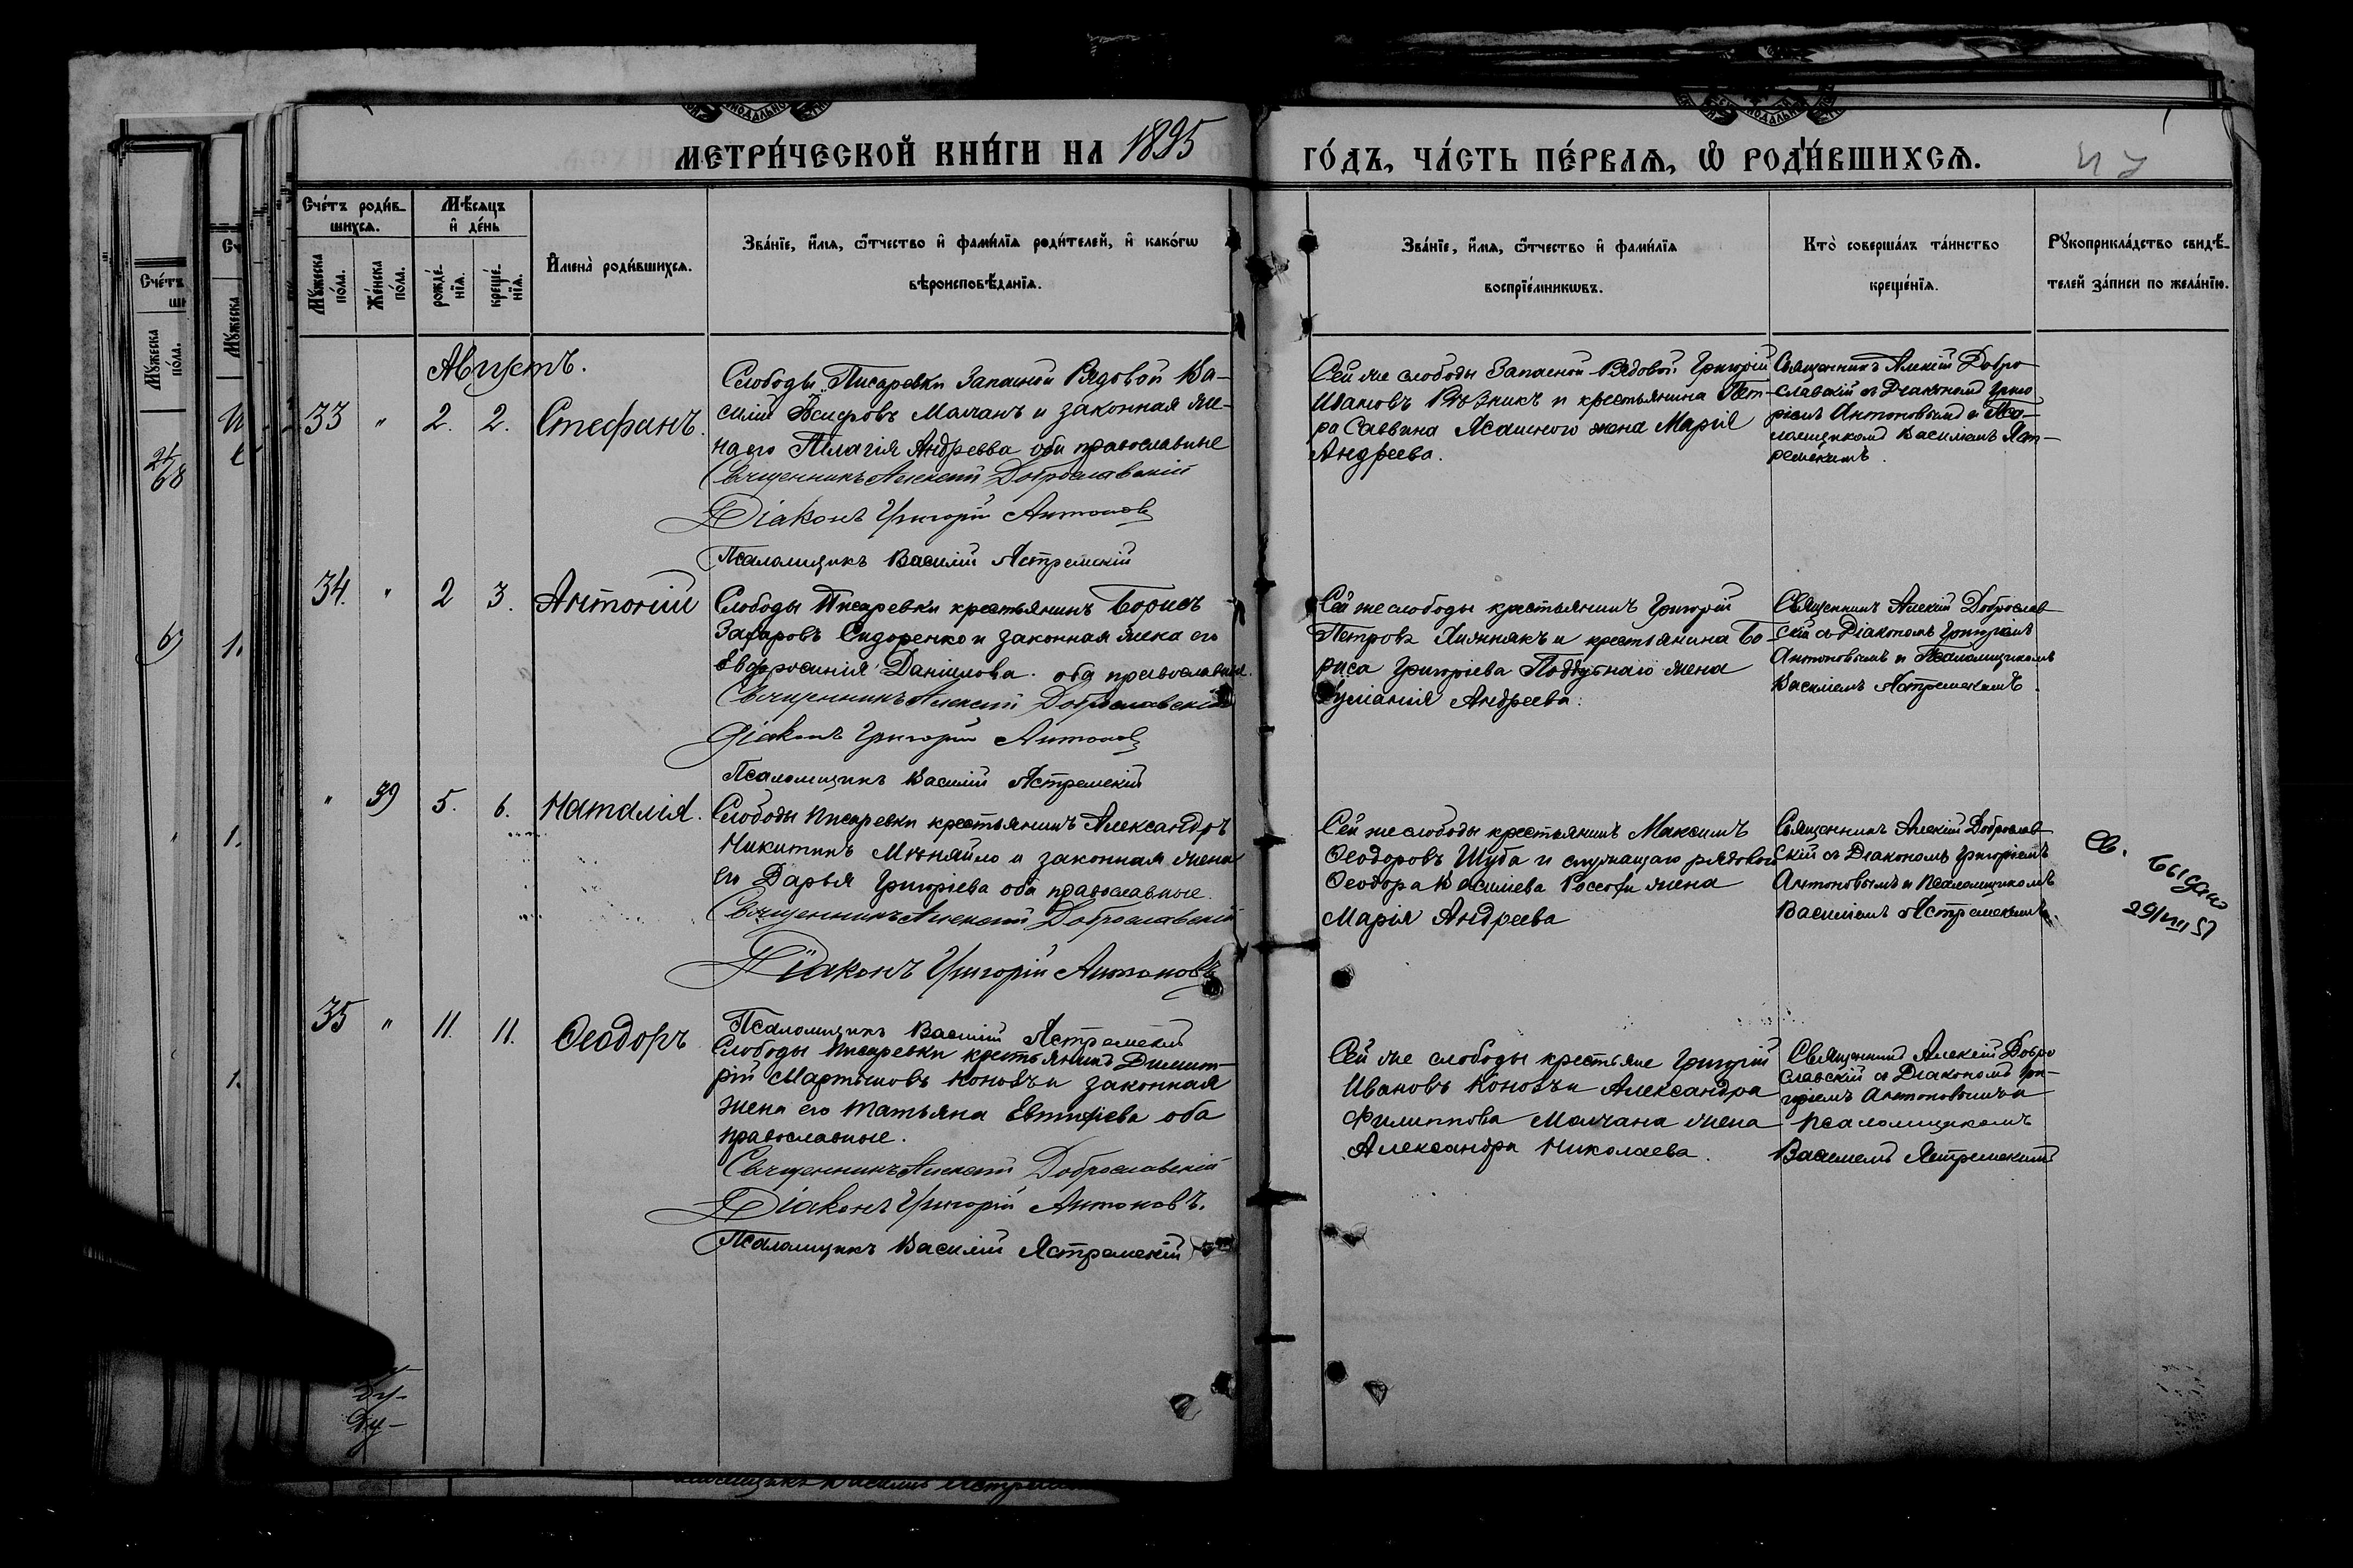 МЕТРИ́ЧЕСКОЙ КНИ́ГИ НА 1895 ГО́ДЪ, ЧА́СТЬ ПЕ́РВАѦ, Ѡ҆ РОДИ́ВШИХСѦ.
Сче́тъ роди́в-
шихсѧ.
Мꙋ́жеска
по́ла.
Же́нска
по́ла.
Мѣ́сяцъ
и҆ де́нь
рожде́-
нїѧ.
креще́-
нїѧ.
И҆мена̀ роди́вшихсѧ.
Зва́нїе, и҆́мѧ, ѻ҆́тчество и҆ фами́лїѧ роди́телей, и҆ како́гѡ
вѣроисповѣ́данїѧ.
Зва́нїе, и҆́мѧ, ѻ҆́тчество и҆ фами́лїѧ
воспрїе́мникѡвъ.
Кто̀ соверша́лъ та́инство
креще́нїѧ.
Рꙋкоприкла́дство свидѣ́-
телей за́писи по жела́нїю.
Августъ.
33 " 2. 2. Стефанъ.
Слободы Писаревки Запасной Рядовой Ва-
силій Молчанъ и законная же-
на его Пелагія Андреева оба православные
Священникъ Алексій Доброславскій
Діаконъ Григорій Антонов
Псаломщикъ Василій Ястремскій
Сей же слободы Запасной Рядовой Григорій
Ивановъ и крестьянина Пет-
ра Саввина жена Марія
Андреева.
Священникъ Алексій Добро
славскій съ Діакономъ Григо
ріемъ Антоновымъ и Пса-
ломщикомъ Василіемъ Яст-
ремскимъ.
34. " 2 3. Антоній
Слободы Писаревки крестьянинъ Борисъ
Захаровъ Сидоренко и законная жена его
Евфросинія Даніилова. оба православные.
Священникъ Алексій Доброславскій
Діаконъ Григорій Антонов
Псаломщикъ Василій Ястремскій
Сей же слободы крестьянинъ Григорій
Петровъ и крестьянина Бо
риса Григоріева Поддубнаго жена
Андреева.
Священникъ Алексій Доброслав
скій съ Діакономъ Григоріемъ
Антоновымъ и Псаломщикомъ
Василіемъ Ястремскимъ.
" 39 5. 6. Наталія.
Слободы Писаревки крестьянинъ Александръ
Никитинъ Мѣняйло и законная жена
его Дарья Григоріева оба православные.
Священникъ Алексій Доброславскій
Діаконъ Григорій Антоновъ
Псаломщикъ Василій Ястремскій
Сей же слободы крестьянинъ Максимъ
Ѳеодоровъ Шуба и служащаго рядовой
Ѳеодора Василіева жена
Марія Андреева
Священникъ Алексій Доброслав
скій съ Діакономъ Григоріемъ
Антоновымъ и Псаломщикомъ
Василіемъ Ястремскимъ.
Св. выдано
29/VIII 51
35 " 11. 11. Ѳеодоръ
Слободы Писаревки крестьянинъ Димит-
рій Мартыновъ и законная
жена его Татьяна Евтихіева оба
православные.
Священникъ Алексій Доброславскій
Діаконъ Григорій Антоновъ.
Псаломщикъ Василій Ястремскій
Сей же слободы крестьяне Григорій
Ивановъ и Александра
Филиппова Молчана жена
Александра Николаева.
Священникъ Алексій Добро
славскій съ Діакономъ Гри-
горіемъ Антоновымъ и
псаломщикомъ
Василіемъ Ястремскимъ